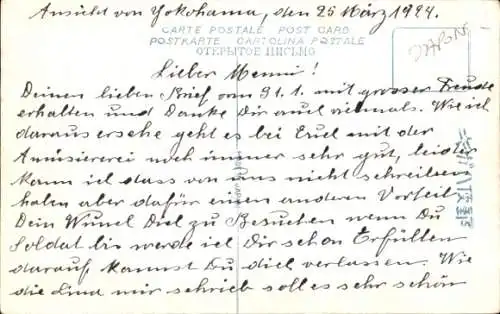 Ansicht von Yokohama, den 25 März 1924.
CARTE POSTALE POST CARD
POSTKARTE CARTOLINA POSTALE
ОТКРЫТОЕ ПИСЬМО
Lieber Menni!
Deinen lieben Brief vom 31.1. mit grosser Freude
erhalten und Danke Dir auch vielmals. Wie ich
daraus ersehe geht es bei Euch mit der
Amüsiererei noch immer sehr gut, leider
kann ich dass von uns nicht schreiben
haben aber dafür einen anderen Vorteil
Dein Wunsch Dich zu Besuchen wenn Du
Soldat bis werde ich Dir schon Erfüllen
darauf kannst Du dich verlassen. Wie
die Lina mir schrieb soll es sehr schön